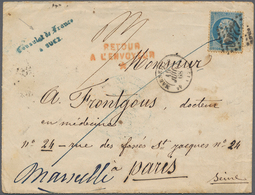 Consulat de France
SUEZ
RETOUR
A L'ENVOYEUR
Monsieur
A. Frontgous, docteur
en médecine
n° 24 - rue des fossés St Jacques n° 24
Marseille à Paris
Seine